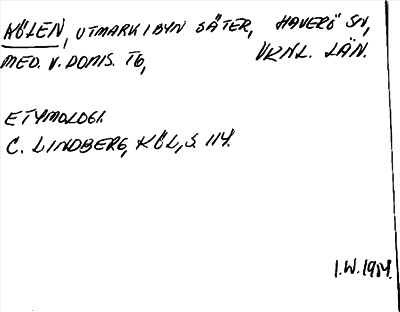 KÖLEN, UTMARK I BYN SÄTER, HAVERÖ SN,
MED. V. DOMS. TG, VRNL. LÄN.
ETYMOLOGI.
C. LINDBERG, KÖL, S. 114.
I.W. 1984.